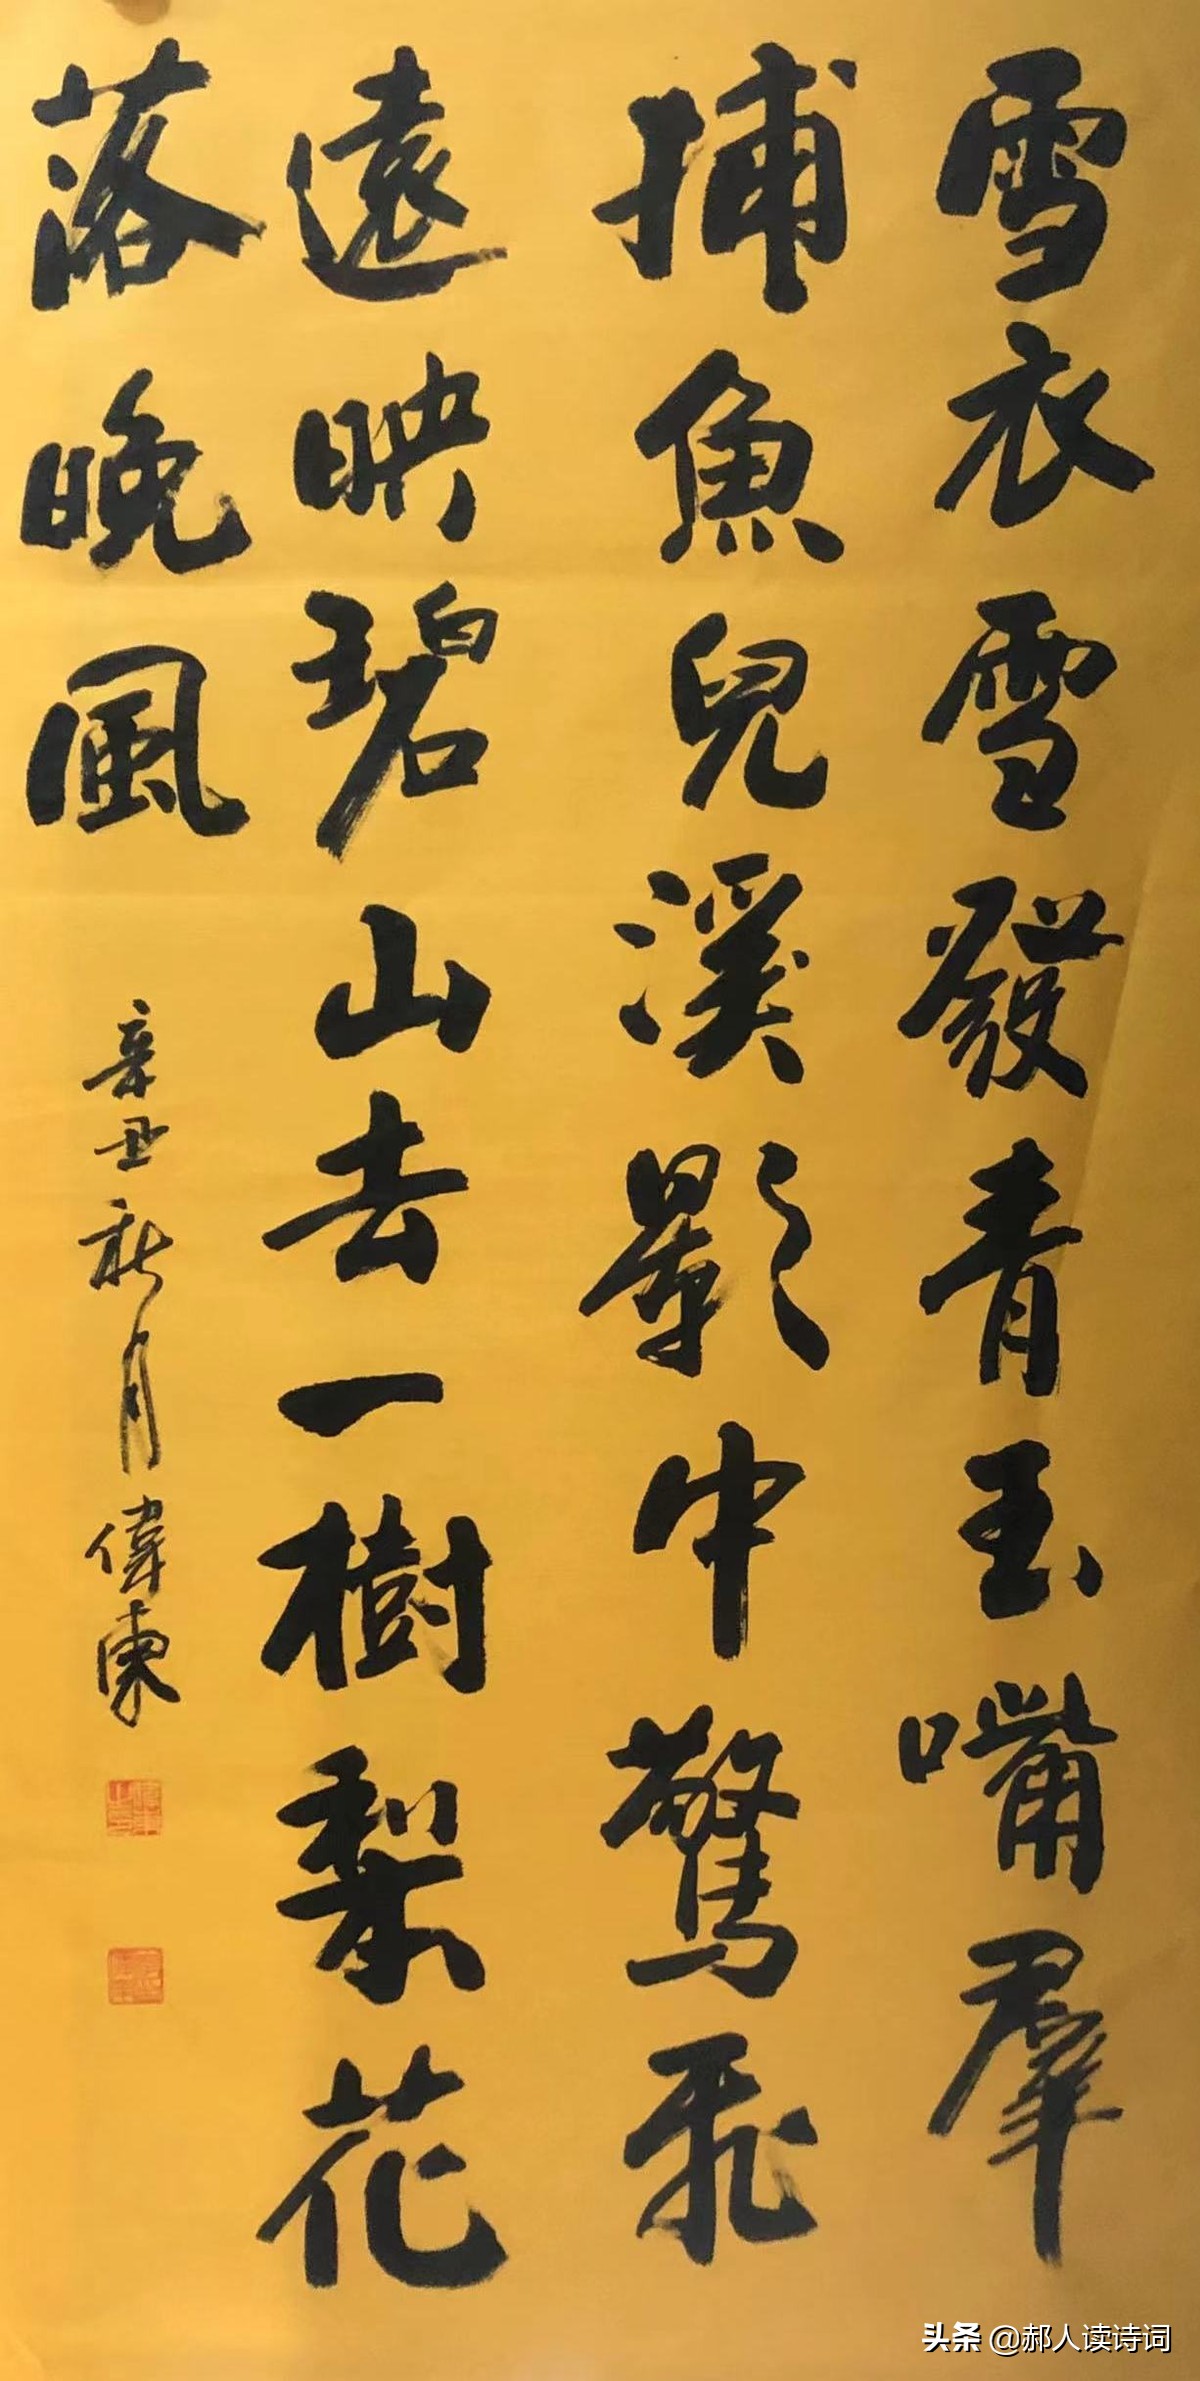 雪衣雪發青玉嘴羣
捕魚兒溪影中驚飛
遠映碧山去一樹梨花
落晚風
辛丑秋月偉東
头条 @郝人读诗词